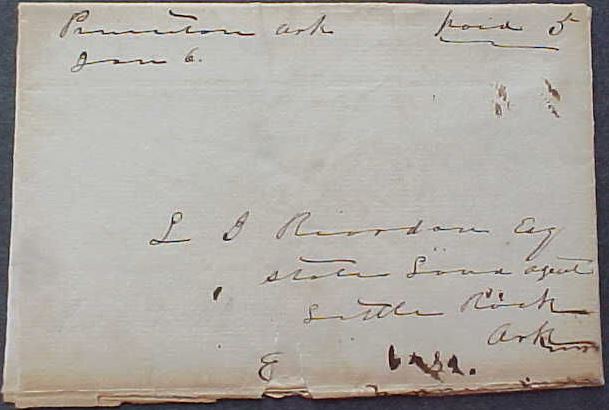 Princeton Ark paid 5
Jan 6.
L D Riordan Esq
State Land agent
Little Rock
Ark